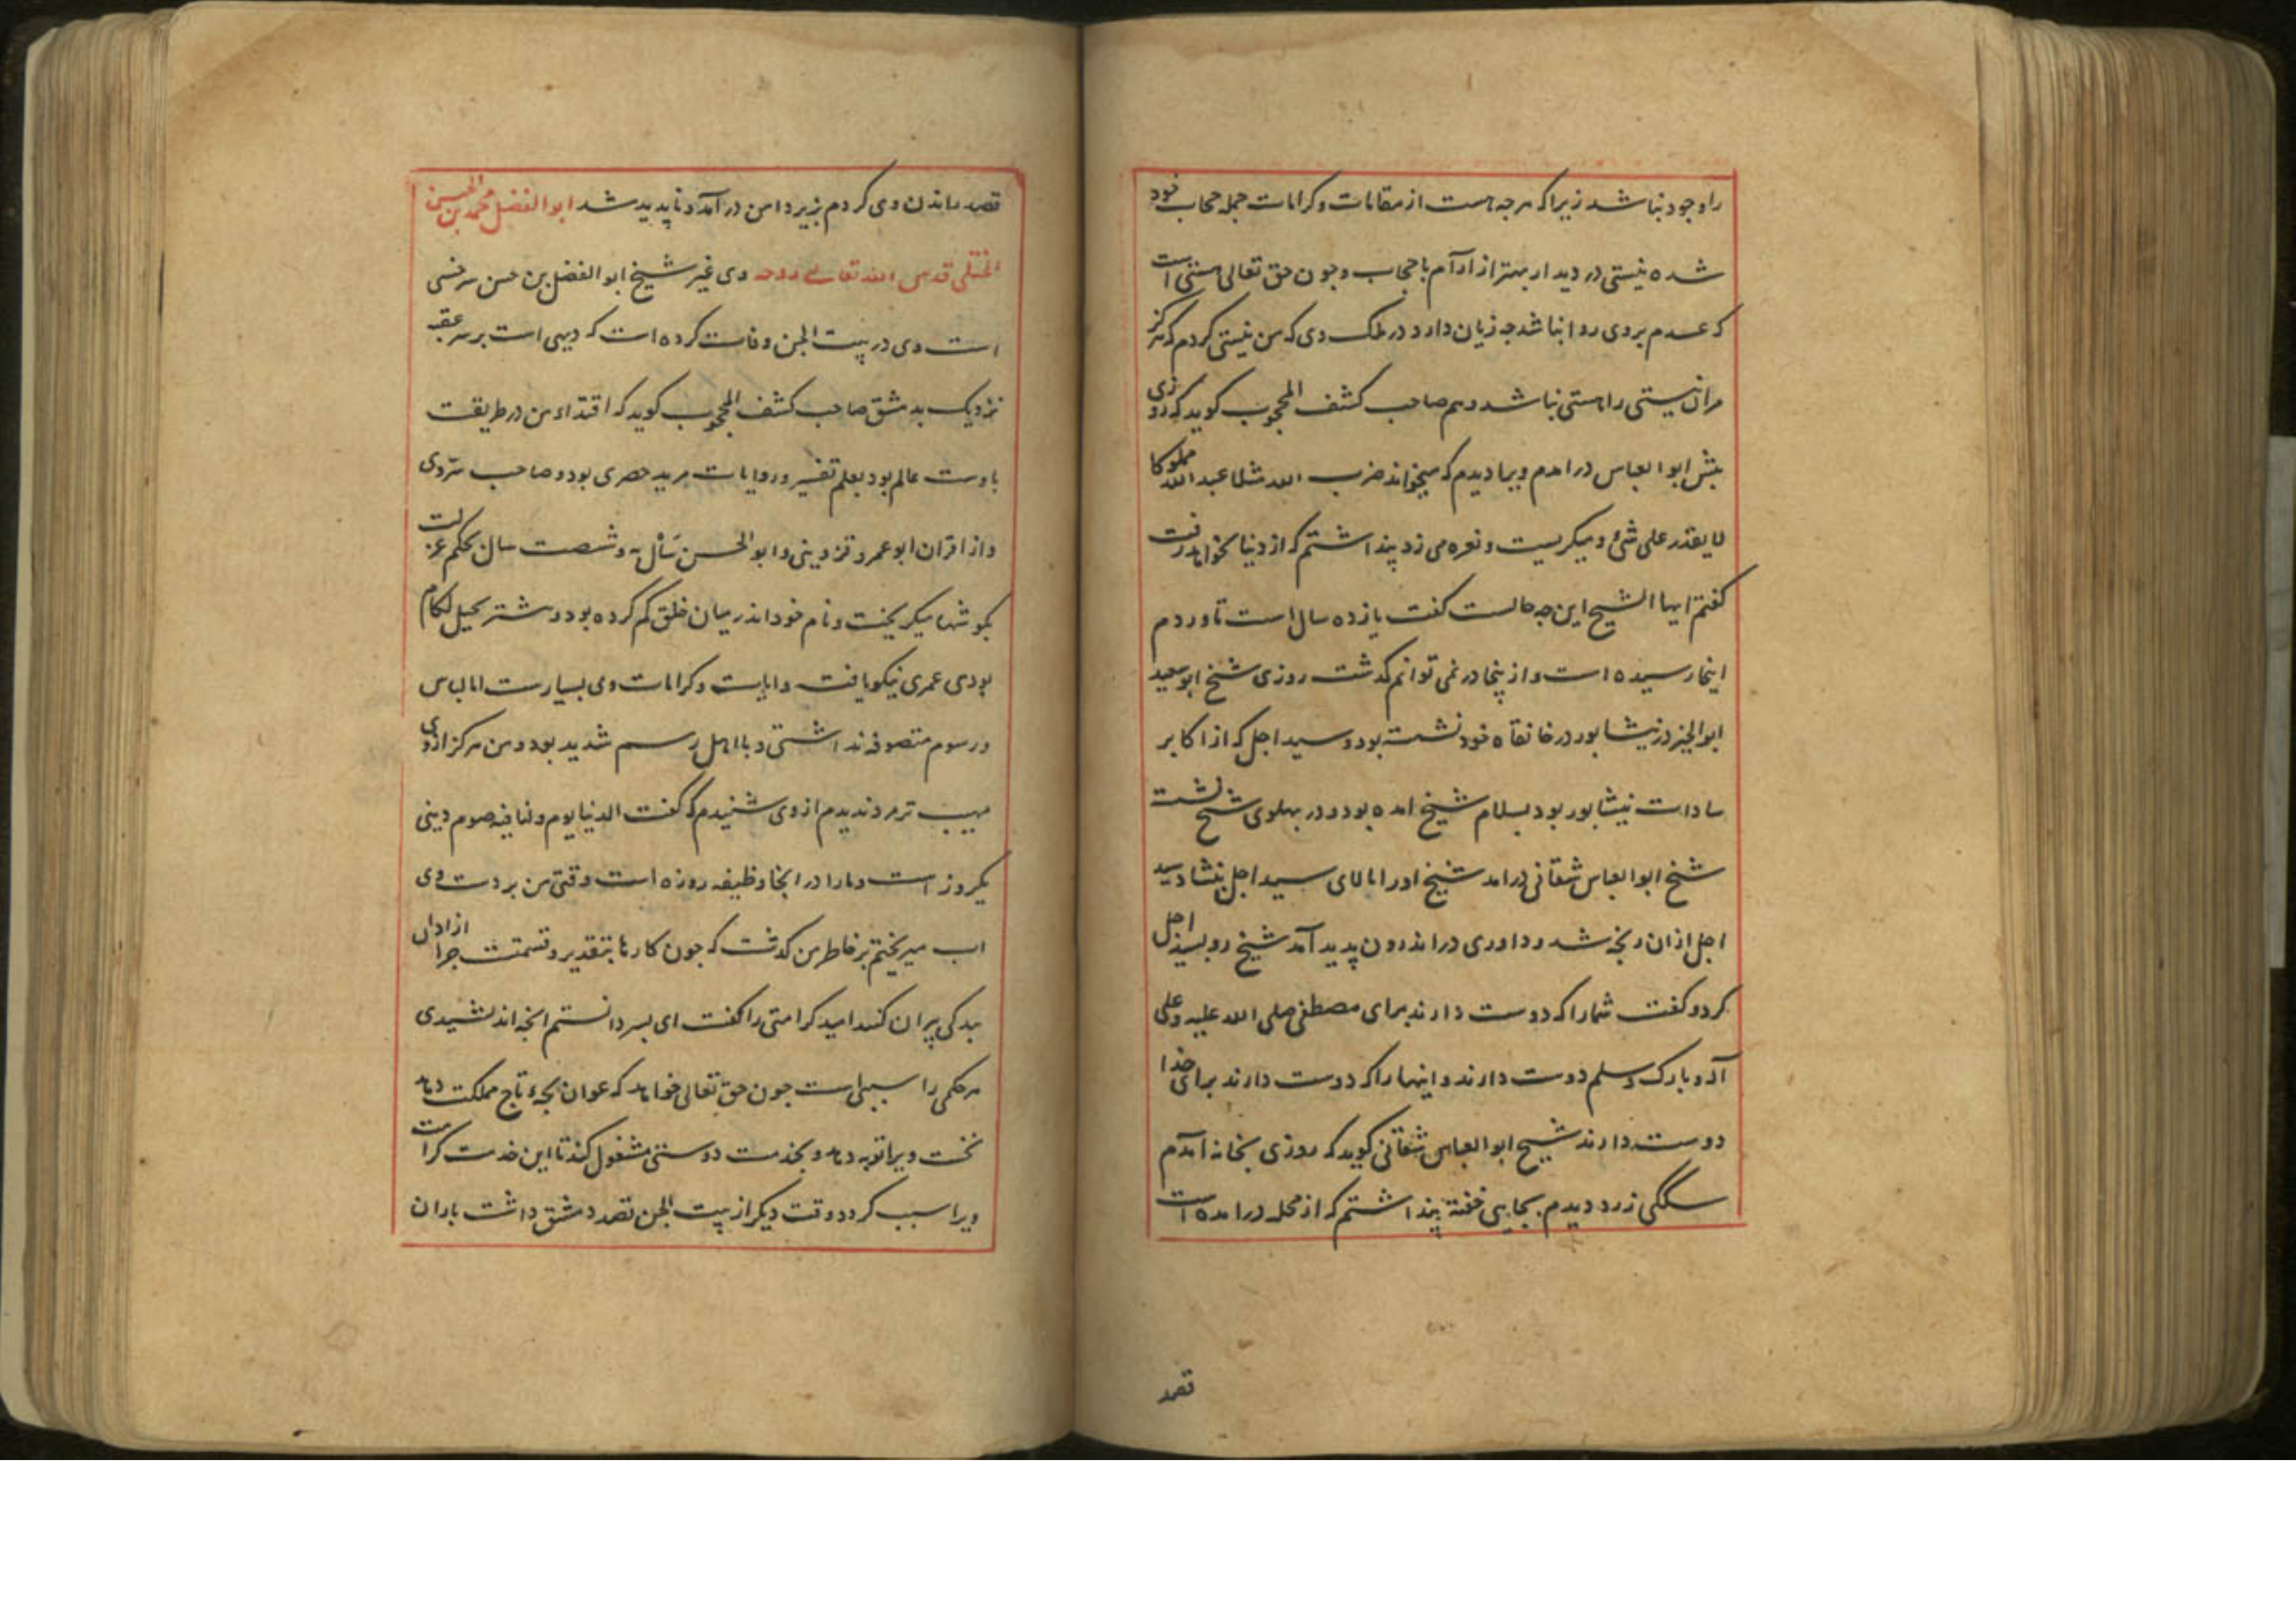 را وجود نباشد زیرا که هرچه هست از مقامات و کرامات جمله حجاب خود
شده نیستی در دیدار بهتر از آرام با حجاب و چون حق تعالی هستی است
که عدم بر وی روا نباشد چه زیان دارد در ملک وی که من نیستی کردم که هرگز
مر آن نیستی را هستی نباشد و هم صاحب کشف المحجوب کوید که روزی
پیش ابو العباس درامدم ویرا دیدم که میخواند ضرب الله مثلا عبدا مملوکا
لا یقدر علی شیء و میکریست و نعره می زد پنداشتم که از دنیا بخواهد رفت
کفتم ایها الشیخ این چه حالست کفت یازده سال است تا وردم
اینجا رسیده است و از ینجا در نمی توانم کذشت روزی شیخ ابو سعید
ابو الخیر در نیشابور در خانقاه خود نشسته بود و سید اجل که از اکابر
سادات نیشابور بود بسلام شیخ امده بود و در پهلوی شیخ نشست
شیخ ابو العباس شقانی درامد شیخ اورا بالای سید اجل بنشاد سید
اجل ازان رنجه شد و داوری در اندرون پدید آمد شیخ رو بسید اجل
کرد و کفت شما را که دوست دارند برای مصطفی صلی الله علیه و علی
آله و بارک و سلم دوست دارند و اینها را که دوست دارند برای خدا
دوست دارند شیخ ابو العباس شقانی کوید که روزی بخانه آمدم
سگکی زرد دیدم بجایی خفته پنداشتم که از محله درامده است
قصد
قصد راندن وی کردم بزیر دامن درآمد و ناپدید شد ابو الفضل محمد بن الحسن
الختلی قدس الله تعالی روحه وی غیر شیخ ابو الفضل بن حسن سرخسی
است وی در بیت الجن وفات کرده است که دیهی است بر سر عقبه
نزدیک بدمشق صاحب کشف المحجوب کوید که اقتداء من در طریقت
باوست عالم بود بعلم تفسیر و روایات مرید حصری بود و صاحب سّر وی
و از اقران ابو عمرو قزوینی و ابو الحسن سال به و شصت سال بحکم عزلت
بکوشها میکریخت و نام خود اندر میان خلق کم کرده بود و بیشتر بجبل لکام
بودی عمری نیکو یافت و ایات و کرامات وی بسیارست اما لباس
و رسوم متصوفه نداشتی و با اهل رسم شدید بود و من هرکز از وی
مهیب تر مرد ندیدم از وی شنیدم که کفت الدنیا یوم و لنا فیه صوم دینی
یکروز است و مارا در انجا وظیفه روزه است وقتی من بر دست وی
اب میریختم بر خاطر من کدشت که چون کارها بتقدیر و قسمتست چرا ازادان
بندکی پیران کنند امید کرامتی را کفت ای پسر دانستم انچه اندیشیدی
هر حکمی را سببی است چون حق تعالی خواهد که عوان بچه‌ء تاج مملکت دهد
نخست ویرا توبه دهد و بخدمت دوستی مشغول کند تا این خدمت کرامت
ویرا سبب کردد و وقت دیکر از بیت الجن قصد دمشق داشت باران